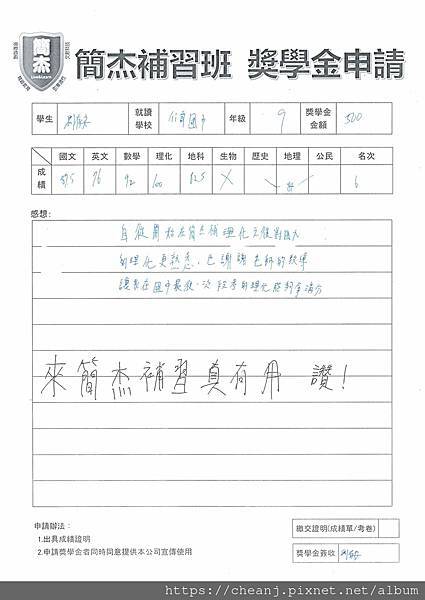 簡杰
Live&Learn
簡杰補習班 獎學金申請
學生 就讀學校 年級 9 獎學金金額 500
國文 英文 數學 理化 地科 生物 歷史 地理 公民 名次
成績 76 92 100 82.5 X 6
感想:
自從開始在簡杰補理化之後
對理化更熟悉,也謝謝老師的教導
讓我在國中最後一次段考的理化能夠拿滿分
來簡杰補習真有用 讚!
申請辦法:
1.出具成績證明
2.申請獎學金者同時同意提供本公司宣傳使用
繳交證明(成績單/考卷)
獎學金簽收
https://cheanj.pixnet.net/album